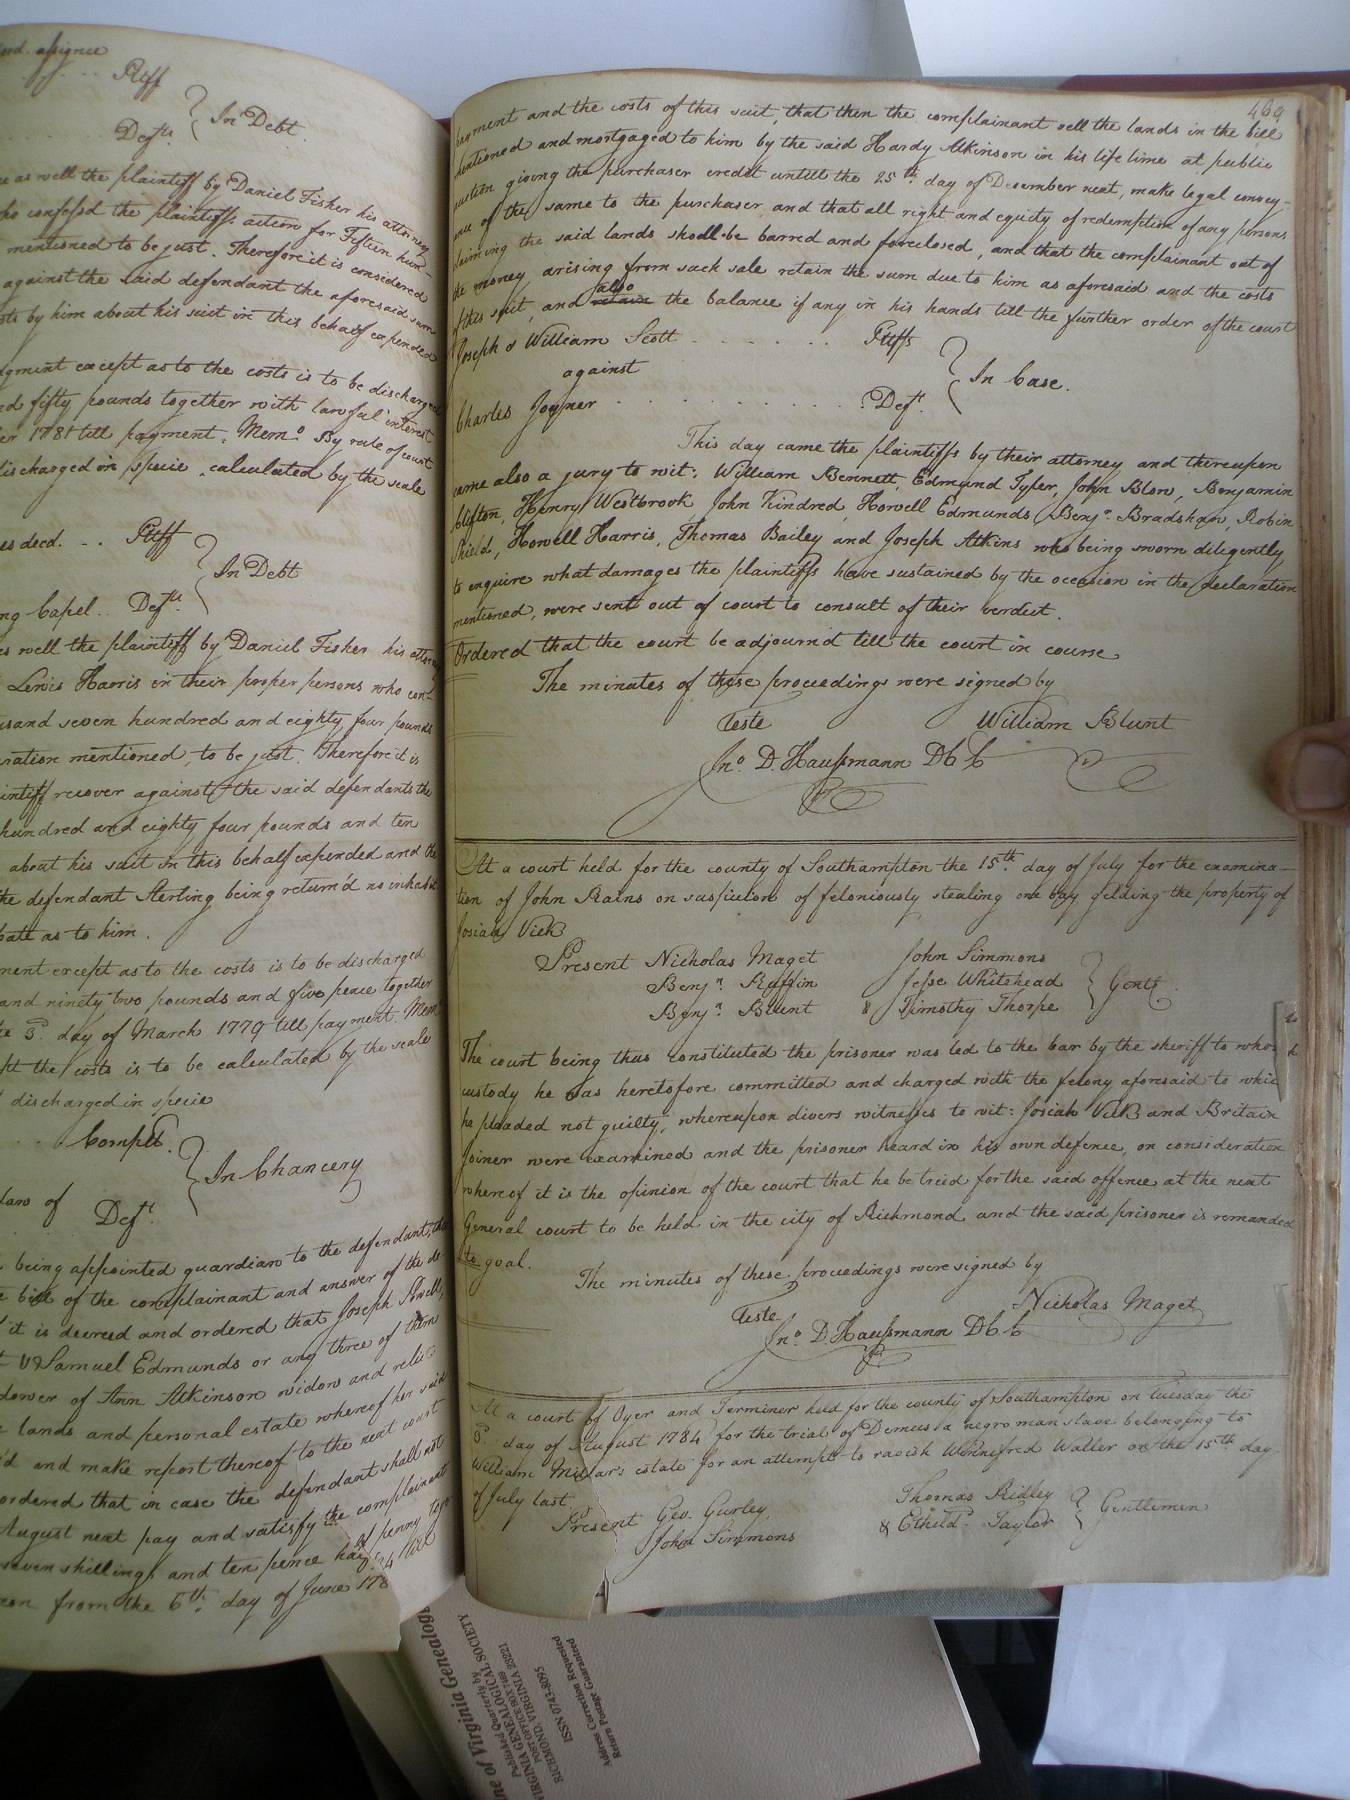 assignee
Pltff
In Debt
Defts.
as well the plaintiff by Daniel Fisher his attorney
confess'd the plaintiffs action for Fifteen hun-
mentioned to be just. Therefore it is considered
against the said defendant the aforesaid sum
by him about his suit in this behalf expended
except as to the costs is to be discharged
fifty pounds together with lawful interest
1781 till payment. Memo. By rule of court
discharged in specie, calculated by the scale
decd. .. Pltff
In Debt
Capel .. Defts.
well the plaintiff by Daniel Fisher his attorney
Lewis Harris in their proper persons who con-
seven hundred and eighty four pounds
mentioned, to be just. Therefore it is
recover against the said defendants the
hundred and eighty four pounds and ten
about his suit in this behalf expended and the
the defendant Sterling being return'd no inhabit
as to him.
except as to the costs is to be discharged
and ninety two pounds and five pence together
3d. day of March 1779 till payment. Mem
the costs is to be calculated by the scale
discharged in specie
Complt.
In Chancery
of Deft.
being appointed guardian to the defendant, the
bill of the complainant and answer of the de-
it is decreed and ordered that Joseph
Samuel Edmunds or any three of them
dower of Ann Atkinson widow and relic
lands and personal estate whereof her said
and make report thereof to the next court
ordered that in case the defendant shall not
August next pay and satisfy the complainant
seven shillings and ten pence half penny
from the 6th. day of June 178
469
payment and the costs of this suit, that then the complainant sell the lands in the bill
mentioned and mortgaged to him by the said Hardy Atkinson in his life time at public
auction giving the purchaser credit untill the 25th. day of December next, make legal convey-
ance of the same to the purchaser and that all right and equity of redemption of any persons
claiming the said lands shall be barred and foreclosed, and that the complainant out of
the money arising from such sale retain the sum due to him as aforesaid and the costs
also
of this suit, and retain the balance if any in his hands till the further order of the court
Joseph & William Scott . . . . . . Pltffs
against
In Case.
Charles Joyner . . . . . . . . . Deft.
This day came the plaintiffs by their attorney and thereupon
came also a jury to wit: William Bennett, Edmund Tyler, John Blow, Benjamin
Clifton, Henry Westbrook, John Kindred, Howell Edmunds, Benja. Bradshaw, Robin
Shield, Howell Harris, Thomas Bailey and Joseph Atkins who being sworn diligently
to enquire what damages the plaintiffs have sustained by the occasion in the declaration
mentioned, were sent out of court to consult of their verdict.
Ordered that the court be adjourn'd till the court in course
The minutes of these proceedings were signed by
Teste William Blunt
Jno. D. Haussmann D C C
At a court held for the county of Southampton the 15th. day of July for the examina-
tion of John Rains on suspicion of feloniously stealing one bay gelding the property of
Josiah Vick
Present Nicholas Maget John Simmons
Benja. Ruffin Jesse Whitehead Gents.
Benja. Blunt & Timothy Thorpe
The court being thus constituted the prisoner was led to the bar by the sheriff to whose
custody he was heretofore committed and charged with the felony aforesaid to which
he pleaded not guilty, whereupon divers witnesses to wit: Josiah Vick and Britain
Joiner were examined and the prisoner heard in his own defence, on consideration
whereof it is the opinion of the court that he be tried for the said offence at the next
General court to be held in the city of Richmond and the said prisoner is remanded
to goal.
The minutes of these proceedings were signed by
Teste Nicholas Maget
Jno. D Haussmann D C C
At a court of Oyer and Terminer held for the county of Southampton on tuesday the
3d. day of August 1784 for the trial of Demus a negro man slave belonging to
William Millar's estate for an attempt to ravish Winnefred Waller on the 15th day
of July last.
Present Geo. Gurley Thomas Ridley
John Simmons & Etheldd. Taylor Gentlemen
of Virginia Genealog
Published Quarterly by
VIRGINIA GENEALOGICAL SOCIETY
POST OFFICE BOX 7469
RICHMOND, VIRGINIA 23221
ISSN 0743-8095
Address Correction Requested
Return Postage Guaranteed